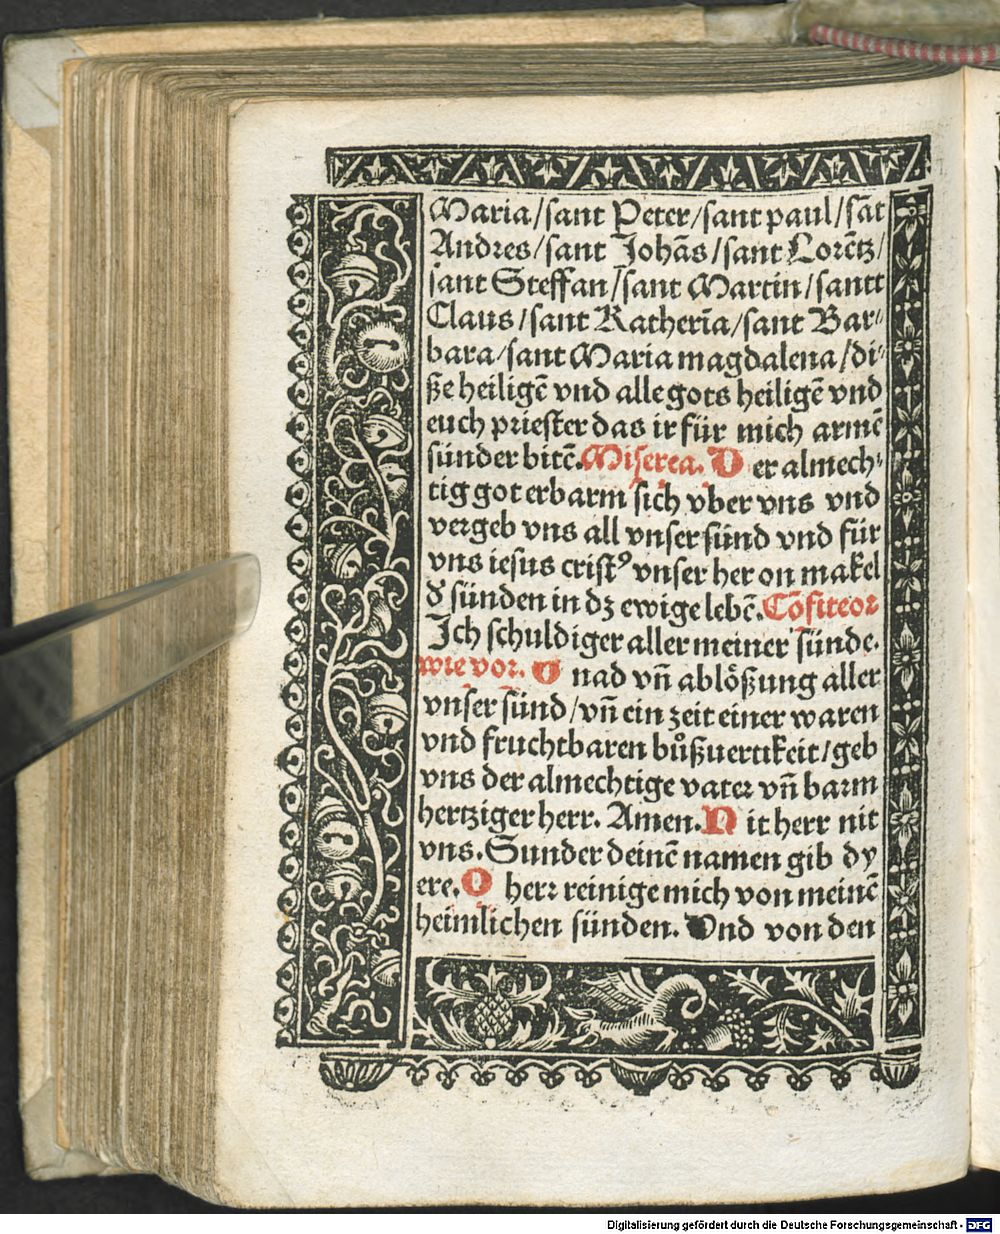 Maria/sant Peter/sant paul/sāt
Andres/sant Johās/sant Lorētz/
sant Steffan/sant Martin/santt
Claus/sant Katherīa/sant Bar⸗
bara/sant Maria magdalena/di⸗
ße heiligē vnd alle gots heiligē vnd
euch priester das ir für mich armē
sünder bitē. Miserea. Der almech⸗
tig got erbarm sich vber vns vnd
vergeb vns all vnser sünd vnd für
vns iesus crist⁹ vnser her on makel
d̛ sünden in dz ewige lebē. Cōfiteor
Ich schuldiger aller meiner sünde.
wie vor. Gnad vn̄ ablößung aller
vnser sünd/vn̄ ein zeit einer waren
vnd fruchtbaren bůßuertikeit/geb
vns der almechtige vater vn̄ barm
hertziger herr. Amen. Nit herr nit
vns. Sunder deinē namen gib dy
ere. O herr reinige mich von meinē
heimlichen sünden. Vnd von den
Digitalisierung gefördert durch die Deutsche Forschungsgemeinschaft - DFG